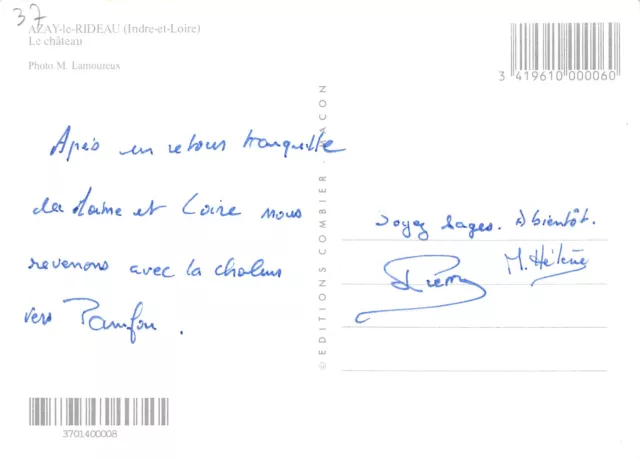 37
AZAY-le-RIDEAU (Indre-et-Loire)
Le château
Photo M. Lamoureux
3 419610 000060
Après un retour tranquille
du Maine et Loire nous
revenons avec la chaleur
vers
Soyez sages. A bientôt.
Pierre
M. Hélène
© EDITIONS COMBIER MACON
3701400008